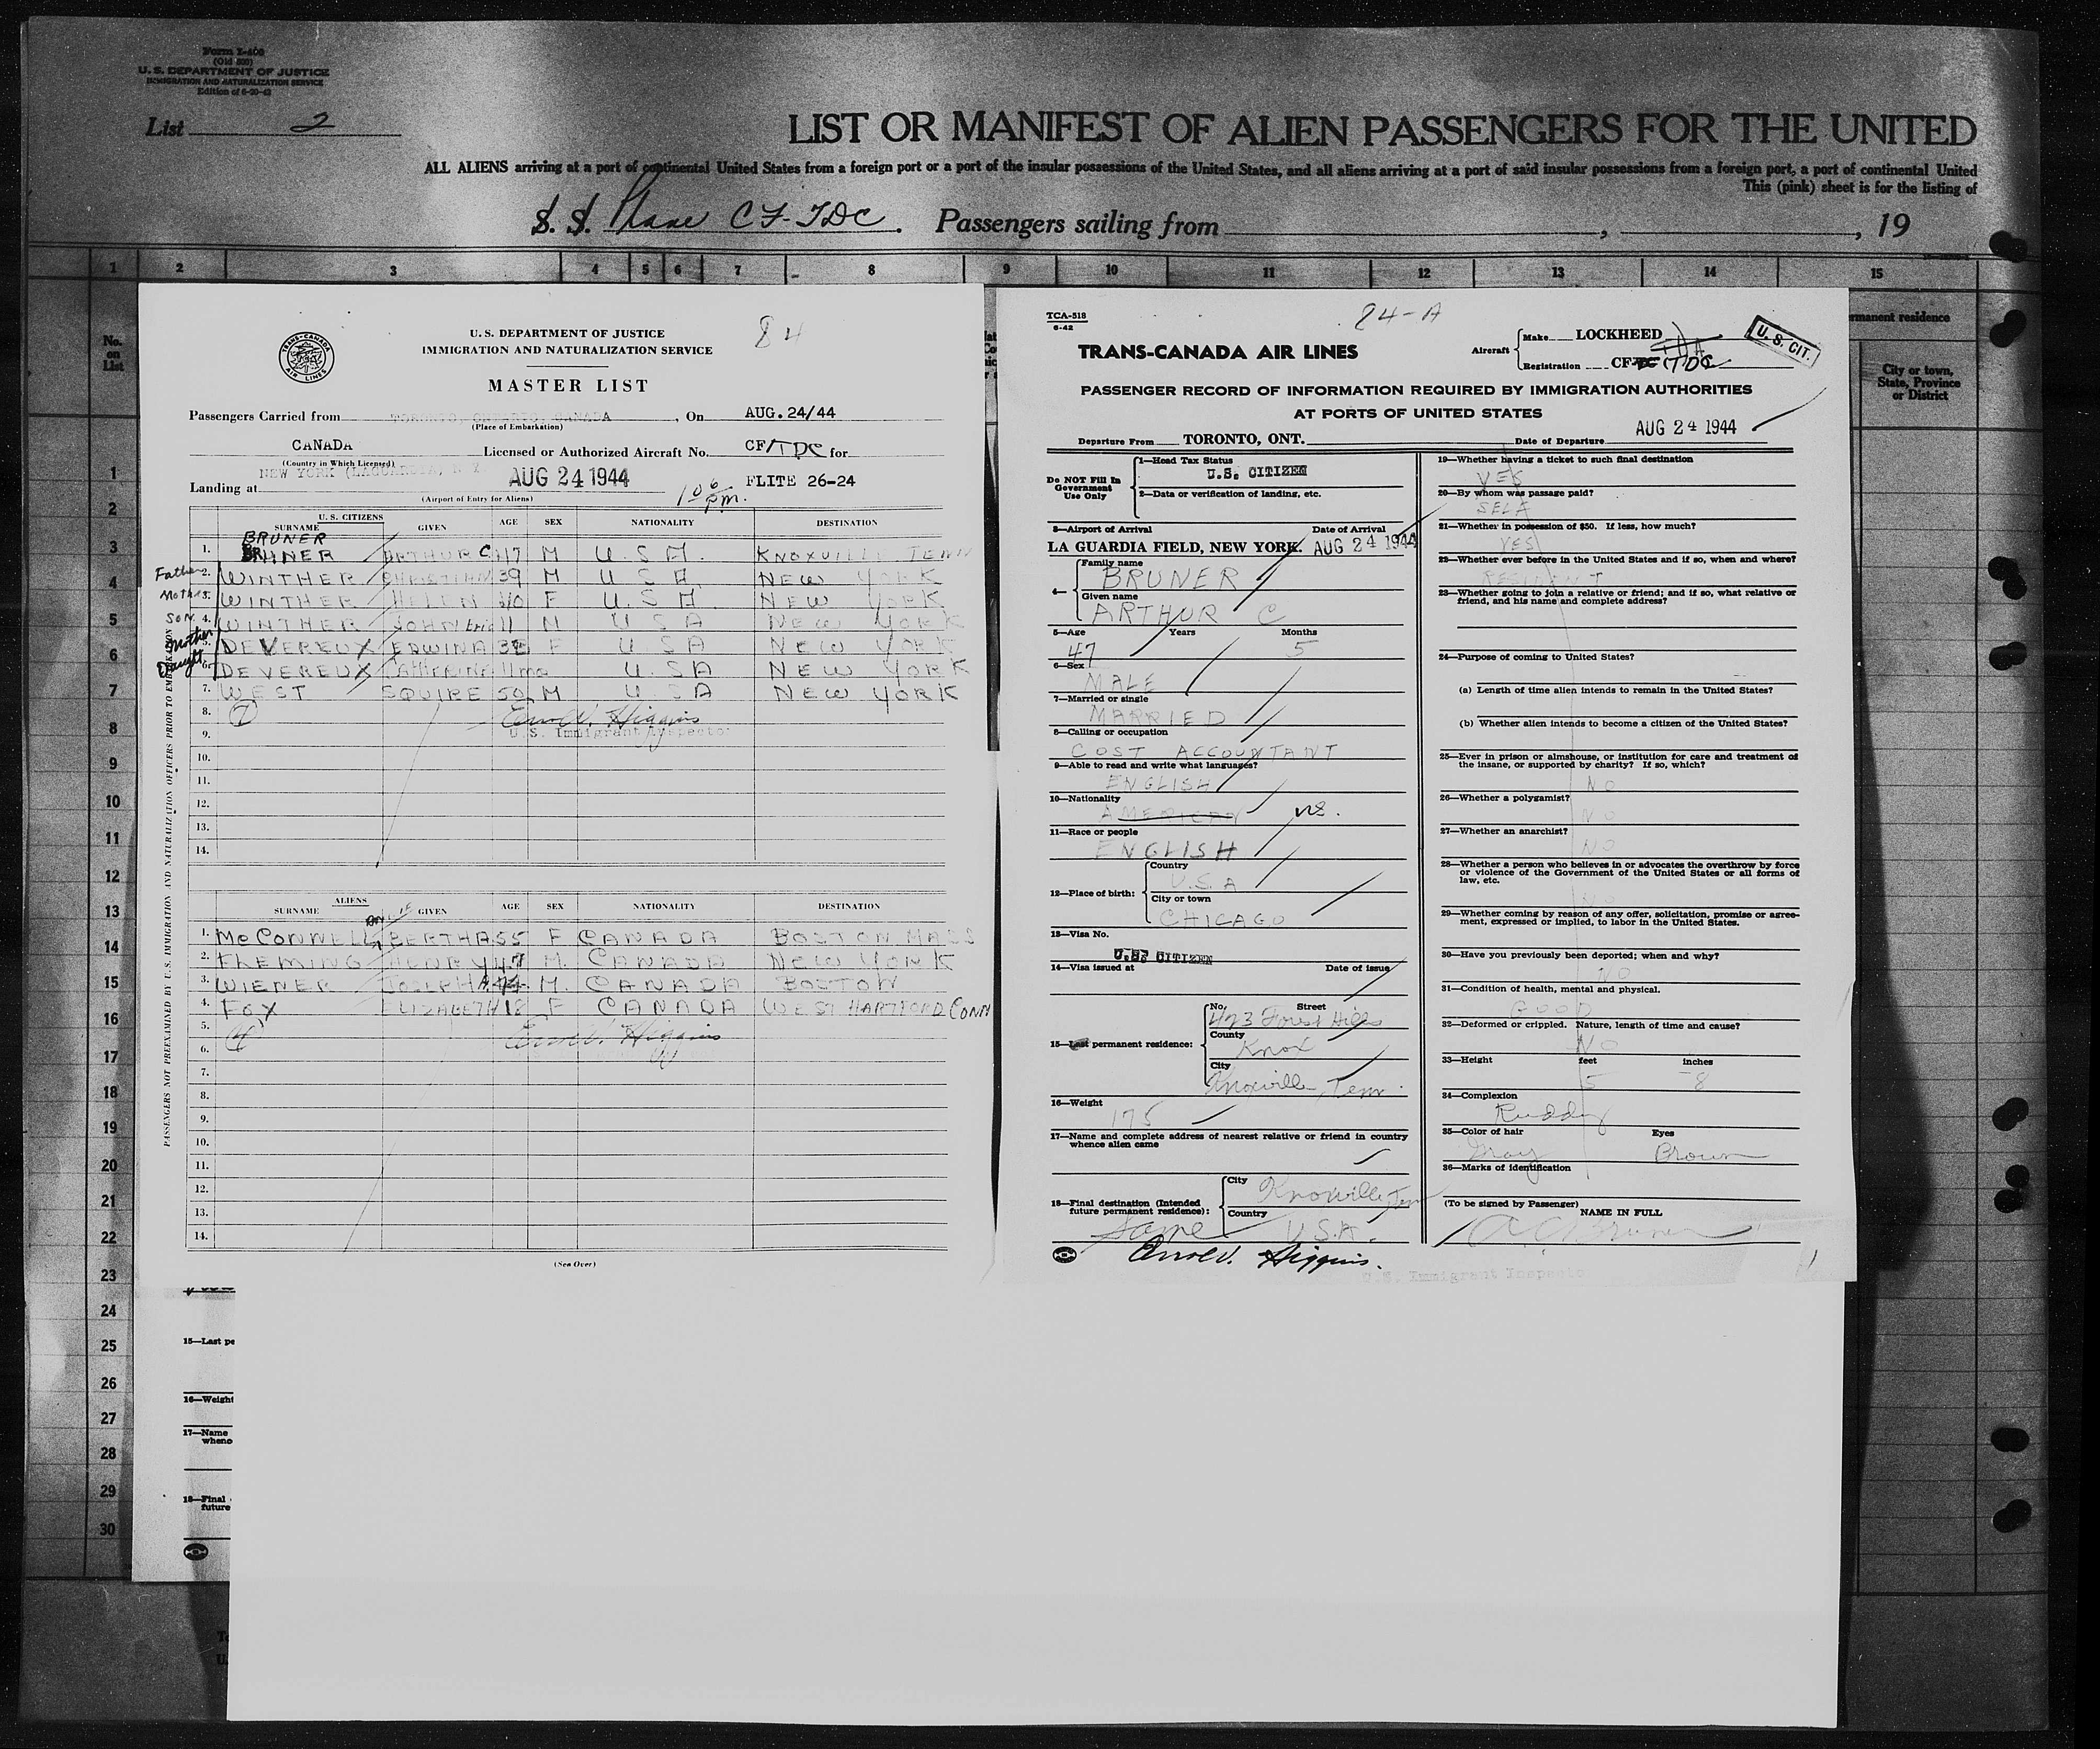 Form I-400
(Old 500)
U. S. DEPARTMENT OF JUSTICE
IMMIGRATION AND NATURALIZATION SERVICE
Edition of 6-20-43
List 2
LIST OR MANIFEST OF ALIEN PASSENGERS FOR THE UNITED
ALL ALIENS arriving at a port of continental United States from a foreign port or a port of the insular possessions of the United States, and all aliens arriving at a port of said insular possessions from a foreign port, a port of continental United
This (pink) sheet is for the listing of
S. S. Plane CF-TDC. Passengers sailing from , , 19
1 2 3 4 5 6 7 8 9 10 11 12 13 14 15
No. on List
rmanent residence
City or town, State, Province or District
1
2
3
4
5
6
7
8
9
10
11
12
13
14
15
16
17
18
19
20
21
22
23
24
25
26
27
28
29
30
TRANS-CANADA AIR LINES
84
U. S. DEPARTMENT OF JUSTICE
IMMIGRATION AND NATURALIZATION SERVICE
MASTER LIST
Passengers Carried from TORONTO, ONTARIO, CANADA, On AUG. 24/44
(Place of Embarkation)
CANADA Licensed or Authorized Aircraft No. CF/TDC for
(Country in Which Licensed)
NEW YORK (LAGUARDIA, N Y
Landing at AUG 24 1944 106 pm. FLITE 26-24
(Airport of Entry for Aliens)
U. S. CITIZENS
SURNAME GIVEN AGE SEX NATIONALITY DESTINATION
BRUNER
1. BRUNER ARTHUR C 47 M U.S.A. KNOXVILLE TENN
Father 2. WINTHER CHRISTIAN 39 M U.S.A. NEW YORK
Mother 3. WINTHER HELEN 40 F U.S.A. NEW YORK
Son 4. WINTHER JOHN Eric 11 M U S A NEW YORK
Mother 5. DEVEREUX EDWINA F U S A NEW YORK
Daught 6. DEVEREUX 11mo U.SA NEW YORK
7. WEST SQUIRE 50 M U.SA NEW YORK
8. (7) Errol V. Higgins
9. U.S. Immigrant Inspector
10.
11.
12.
13.
14.
ALIENS
SURNAME GIVEN AGE SEX NATIONALITY DESTINATION
1. McCONNELL BERTHA 55 F CANADA BOSTON MASS
2. FLEMING HENRY 47 M. CANADA NEW YORK
3. WIENER JOSEPH M. CANADA BOSTON
4. FOX ELIZABETH 18 F CANADA WEST HARTFORD CONN
5. (4) Errol V. Higgins
6.
7.
8.
9.
10.
11.
12.
13.
14.
(See Over)
PASSENGERS NOT PREEXAMINED BY U.S. IMMIGRATION AND NATURALIZATION OFFICERS PRIOR TO EMBARKATION
15—Last pe
16—Weight
17—Name
whenc
18—Final
future
TCA-518
6-42
84-A
TRANS-CANADA AIR LINES
Aircraft Make LOCKHEED
Registration CF-TDC
U. S. CIT.
PASSENGER RECORD OF INFORMATION REQUIRED BY IMMIGRATION AUTHORITIES
AT PORTS OF UNITED STATES
Departure From TORONTO, ONT. Date of Departure AUG 24 1944
Do NOT Fill In Government Use Only
1—Head Tax Status
U.S. CITIZEN
2—Data or verification of landing, etc.
3—Airport of Arrival Date of Arrival
LA GUARDIA FIELD, NEW YORK. AUG 24 1944
4— Family name
BRUNER
Given name
ARTHUR C
5—Age Years Months
47 5
6—Sex
MALE
7—Married or single
MARRIED
8—Calling or occupation
COST ACCOUNTANT
9—Able to read and write what languages?
ENGLISH
10—Nationality
AMERICAN US.
11—Race or people
ENGLISH
12—Place of birth: Country
U.S.A
City or town
CHICAGO
13—Visa No.
U.S. CITIZEN
14—Visa issued at Date of issue
15—Last permanent residence:
No. Street
423 Forest Hills
County
Knox
City
Knoxville, Tenn.
16—Weight
175
17—Name and complete address of nearest relative or friend in country
whence alien came
18—Final destination (Intended
future permanent residence):
City Knoxville, Tenn
Country
Same U.S.A.
Errol V. Higgins.
U.S. Immigrant Inspector
19—Whether having a ticket to such final destination
YES
20—By whom was passage paid?
SELF
21—Whether in possession of $50. If less, how much?
YES
22—Whether ever before in the United States and if so, when and where?
RESIDENT
23—Whether going to join a relative or friend; and if so, what relative or
friend, and his name and complete address?
24—Purpose of coming to United States?
(a) Length of time alien intends to remain in the United States?
(b) Whether alien intends to become a citizen of the United States?
25—Ever in prison or almshouse, or institution for care and treatment of
the insane, or supported by charity? If so, which?
NO
26—Whether a polygamist?
NO
27—Whether an anarchist?
NO
28—Whether a person who believes in or advocates the overthrow by force
or violence of the Government of the United States or all forms of
law, etc.
NO
29—Whether coming by reason of any offer, solicitation, promise or agree-
ment, expressed or implied, to labor in the United States.
30—Have you previously been deported; when and why?
NO
31—Condition of health, mental and physical.
GOOD
32—Deformed or crippled. Nature, length of time and cause?
NO
33—Height feet inches
5 8
34—Complexion
Ruddy
35—Color of hair Eyes
Gray Brown
36—Marks of identification
(To be signed by Passenger)
NAME IN FULL
A. C. Bruner